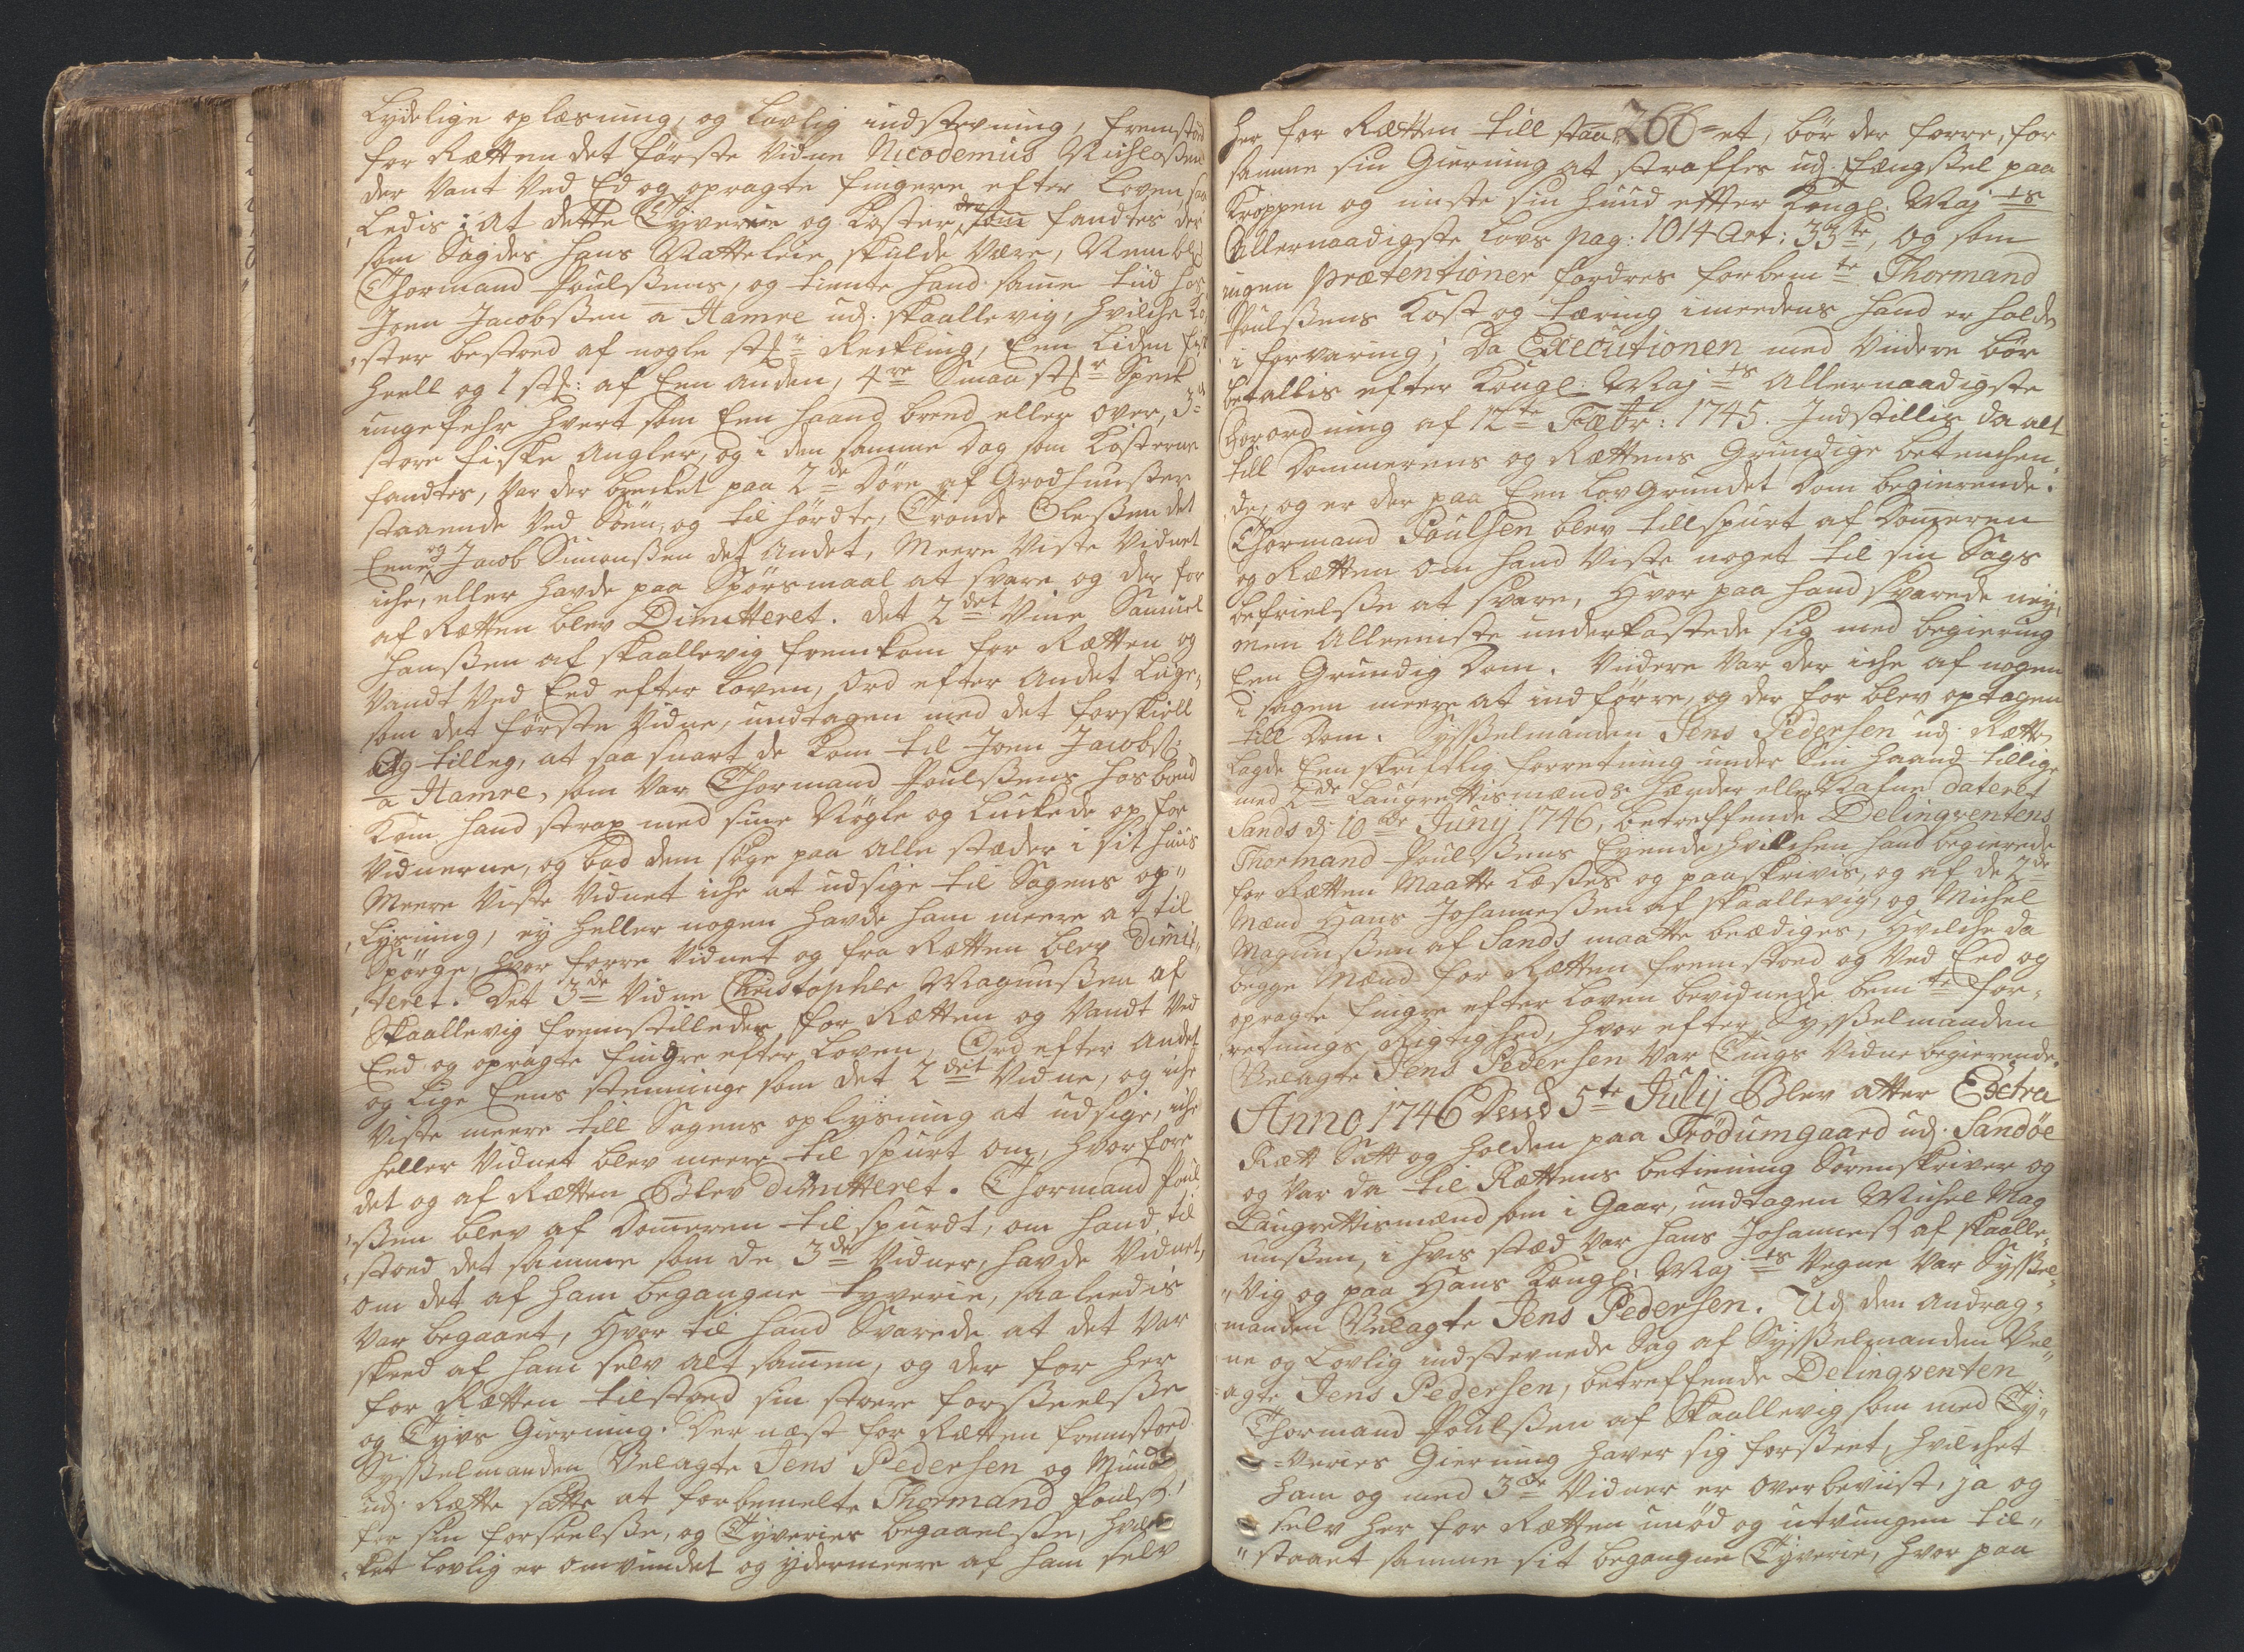 Lydelige oplæsning, og lovlig indstevning, fremstod
for Rætten det förste Vidne Nicodemus Michelßen
der Vant Ved Ed og opragte fingere efter Loven, saa
Ledis: At dette Tyverie og Koster, der som fandtes der
som Sagdes hans Natteleie skulde være, Nembl:
Thormand Poulßens, og tiente hand samme tiid hos
Joen Jacobßen a Hamre udj Skaallevig, hvilche Ko-
ster bestoed af nogle stk: Reckling, Een Liden fisk
heell og 1 stk: af Een anden, 4re Smaa stkr Speck
ungefehr hvert som Een haand bred eller over, 3de
store fiske Angler, og i den samme Dag som Kosterne
fandtes, var der brecket paa 2de Döre af Grødhuußer
staaende Ved Söen, og til hördte, Tronde Oleßen det
Eene og Jacob Simonßen det Andet, Meere Viste Vidnet
iche, eller havde paa Spörsmaal at svare og der for
af Rætten blev Dimitteret. det 2det Vine Samuel
Hanßen af Skaallevig fremkom for Rætten og
Vandt Ved Eed efter Loven, Ord efter Andet Lige-
som det förste Vidne, undtagen med det forskiell
Og tilleg, at saa snart de kom til Joen Jacobsß:
a Hamre, som var Thormand Poulßens hosbond
kom hand strax med sine Nögle og Luckede op for
Vidnerne, og bad dem söge paa Alle stæder i sit huus
Meere Viste Vidnet iche at udsige til Sagens op-
Lysning, ey heller nogen havde ham meere at til
Spörge, hvor forre Vidnet og fra Rætten blev Dimit-
teret. Det 3de Vidne Christopher Magnußen af
Skaallevig fremstillede sig for Rætten og Vandt Ved
Eed og opragte fingre efter Loven, Ord efter Andet
og Lige Eens stemminge som det 2det Vidne, og iche
Viste meere till Sagens oplysning at udsige, iche
heller Vidnet blev meere til spurt om, hvorfore
det og af Rætten Blev dimitteret. Thormand Poul-
ßen blev af Dommeren til spurdt, om hand til
stoed det samme som de 3de Vidner, havde Vidnet,
om det af ham begangne tyverie, saaleedis
var begaaet, Hvor til hand Svarede at det var
skeed af ham selv alt sammen, og der for her
for Rætten tilstoed sin store forßeelße
og Tyvs Gierning. Der næst for Rætten fremstoed
Sysßelmanden Velagte Jens Pedersen og
udj Rætte satte at forbemelte Thormand Poulß:
for sin forseelße, og Tyveries begaaelße, hvil-
ket lovlig er omvundet og ydermeere af ham selv
her for Rætten till staa 266 et, bör der forre, for
samme sin Gierning at straffes udj fængßel paa
Kroppen og miste sin huud effter Kongl. Majts
Allernaadigste Lovs pag: 1014 Art: 33te, og som
ingen Prætentioner fordres forbemte Thormand
Poulßens Kost og tæring imedens hand er holdt
i forvaring; da Executionen med Viidere bör
betallis efter Kongl: Majts Allernaadigste
Forordning af 12te Fæbr: 1745. Indstillis da alt
till Dommerens og Rættens Grundige betenchen-
de, og er der paa Een Lovgrundet Dom begierende.
Thormand Poulsen blev tillspurt af Dommeren
og Rætten om hand Viste noget til sin Sags
befrielße at svare, Hvor paa hand svarede ney,
men Alleeniste underkastede sig med begiering
Een Grundig Dom. Viidere Var der iche af nogen
i sagen meere at indförre, og der for blev optagen
till Dom. Sysßelmanden Jens Pedersen udj Rætte
lagde Een skriftlig forretning under Sin haand tillige
med 2de Laugrettismænds Hænder eller Nafne dateret
Sands dj 10de Junij 1746, betreffende Delinqventens
Thormand Poulßens Eyende, hvilchen hand begierede
for Rætten Maatte læßes og paaskrivis, og af de 2de
Mænd Hans Johanneßen af Skaallevig, og Michel
Magnunßen af Sands maatte beædiges, Hvilche da
begge Mænd for Rætten fremstoed og Ved Eed og
opragte fingre efter Loven bevidnede bemte for-
retnings Rigtighed, hvor efter Sysßelmanden
Velagte Jens Pedersen var Tings Vidne begierende.
Anno 1746 Dend 5te Julij Blev atter Extra
Rætt Satt og holden paa Trödumgaard udj Sandöe
og var da til Rættens betiening Sorenskriver og
Laugrettismænd som i Gaar, undtagen Michel Mag
nunßen, i hvis stæd var Hans Johanneß af Skaalle-
vig og paa Hans Kongl: Majts Vegne Var Sysßel-
manden Velagte Jens Pedersen. Udj den Andrag-
ne og Lovlig indstevnede Sag af Sysßelmanden Vel-
agte Jens Pedersen, betreffende Delinqventen
Thormand Poulßen af Skaallevig som med Ty-
veries Gierning haver sig forßeet, hvilchet
ham og med 3de Vidner er overbeviist, ja og
selv her for Rætten unöd og utvungen til-
staaet samme sit begangne Tyverie, hvor paa